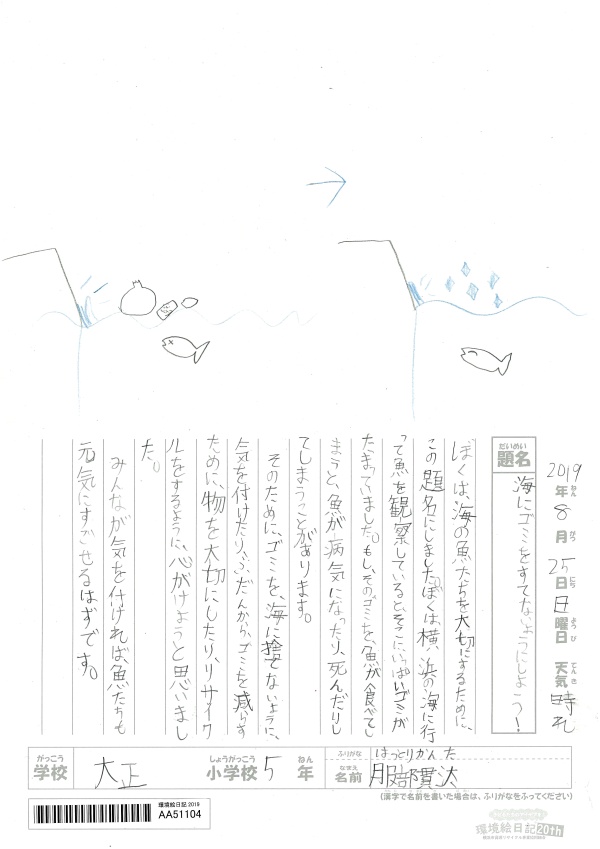 2019年8月25日日曜日 天気 晴れ
ねん がつ にち ようび てんき
だいめい
題名
海にゴミをすてないようにしよう!
ぼくは、海の魚たちを大切にするために、
この題名にしました。ぼくは、横浜の海に行
って魚を観察していると、そこにいっぱいゴミが
たまっていました。もし、そのゴミを、魚が食べてし
まうと、魚が病気になったり、死んだりし
てしまうことがあります。
そのために、ゴミを、海に捨てないように、
気を付けたり、ふだんから、ゴミを減らす
ために、物を大切にしたり、リサイク
ルをするように、心がけようと思いまし
た。
みんなが気を付ければ、魚たちも
元気にすごせるはずです。
がっこう しょうがっこう ねん
学校 大正 小学校 5年
ふりがな はっとりかんた
なまえ
名前 服部貫汰
(漢字で名前を書いた場合は、ふりがなをふってください)
環境絵日記 2019
AA51104
環境絵日記20th